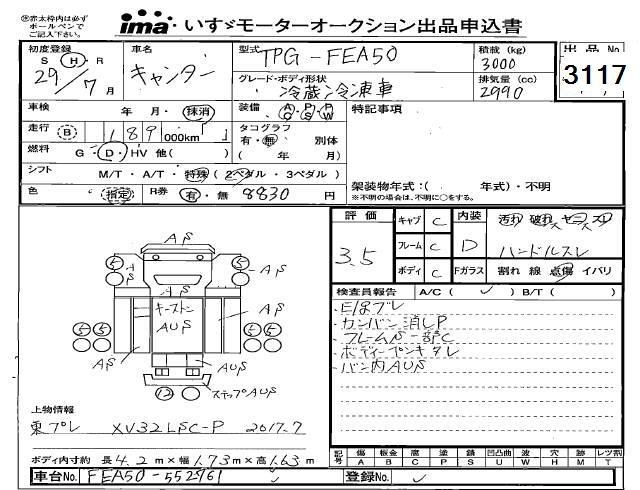 ㊟赤太枠内は必ず
ボールペンで
ご記入下さい。
ima いすゞモーターオークション出品申込書
初度登録 S・H・R 29/7月
車名 キャンター
型式 TPG-FEA50
グレード・ボディ形状 冷蔵冷凍車
積載(kg) 3000
排気量(cc) 2990
出品No 3117
車検 年・月・抹消
装備 AC PS PW
特記事項
走行 B 189 000km
タコグラフ 有・無 別体 ( 年 月)
燃料 G・D・HV 他( )
シフト M/T・A/T・特殊(2ペダル・3ペダル)
架装物年式:( 年式)・不明
※不明の場合は、不明に○をする。
色 指定 R券 有・無 8830 円
評価 3.5
キャブ C
フレーム C
ボディ C
内装 D
汚れ 破れ ヤニ スレ
ハンドルスレ
Fガラス 割れ 線 点傷 イバリ
検査員報告 A/C( ) B/T( )
カンバン消しP
フレームS一部C
ボディーペンキタレ
バン内AUS
AS
5 5
AS AS
AS
キーストン
AUS
5 5 5 5
AS AS
12
ステップAUS
上物情報
東プレ XV32LSC-P 2017.7
ボディ内寸約 長4.2m×幅1.73m×高1.63m
記号 傷A 板金B 腐C 塗P 錆S 凹凸曲U 波W 穴H 跡M レツ割T
車台No. FEA50-552961
登録No.